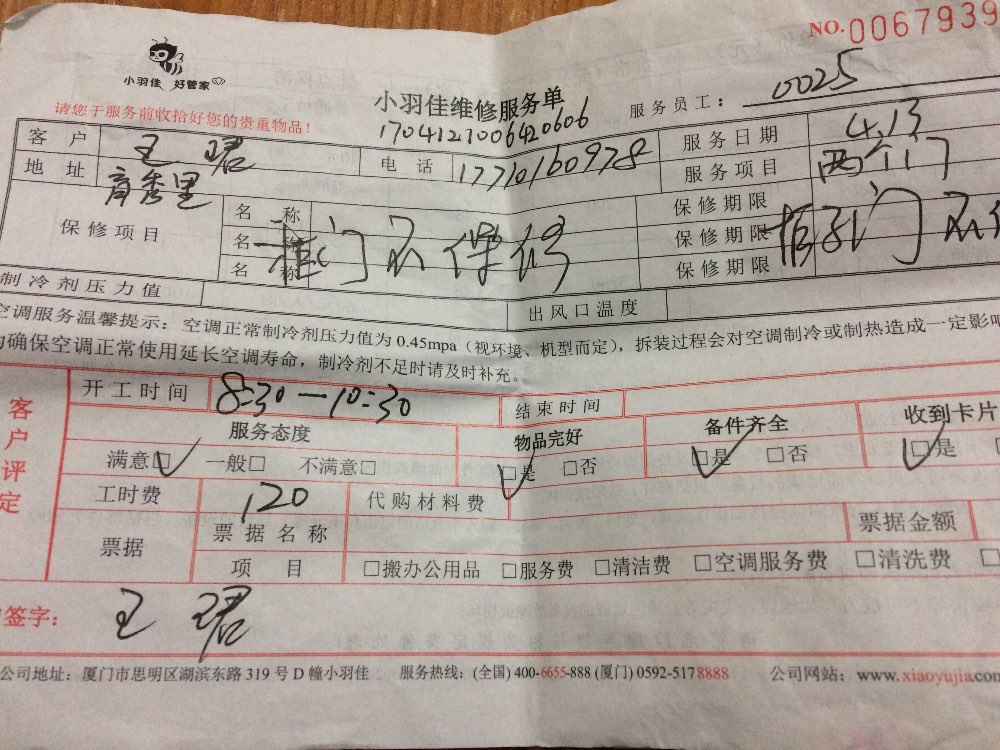 NO.0067939
小羽佳 好管家
小羽佳维修服务单
服务员工： 0025
请您于服务前收拾好您的贵重物品！
1704121006420606
客户 王珺 电话 17710160978 服务日期 4.13
地址 育秀里 服务项目 两个门
保修项目 名称 保修期限
名称 柜门不保修 保修期限
名称 保修期限
制冷剂压力值 出风口温度
空调服务温馨提示：空调正常制冷剂压力值为0.45mpa（视环境、机型而定），拆装过程会对空调制冷或制热造成一定影响
确保空调正常使用延长空调寿命，制冷剂不足时请及时补充。
客户评定
开工时间 8:30—10:30 结束时间
服务态度 物品完好 备件齐全 收到卡片
满意☑ 一般□ 不满意□ ☑是 □否 ☑是 □否 ☑是
工时费 120 代购材料费
票据 票据名称 票据金额
项目 □搬办公用品 □服务费 □清洁费 □空调服务费 □清洗费
签字： 王珺
公司地址：厦门市思明区湖滨东路319号D幢小羽佳 服务热线：(全国) 400-6655-888 (厦门) 0592-5178888 公司网站：www.xiaoyujia.com